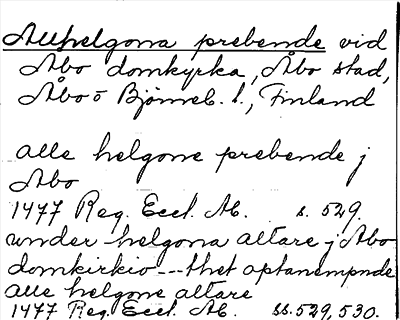 Allhelgona prebende vid
Åbo domkyrka, Åbo stad,
Åbo o Björneb. l., Finland
alle helgone prebende j
Abo
1477 Reg. Eccl. Ab. s. 529.
wnder helgona altare j Abo
domkirkio---thet optanempnde
alle helgone altare
1477 Reg. Eccl. Ab. ss. 529, 530.